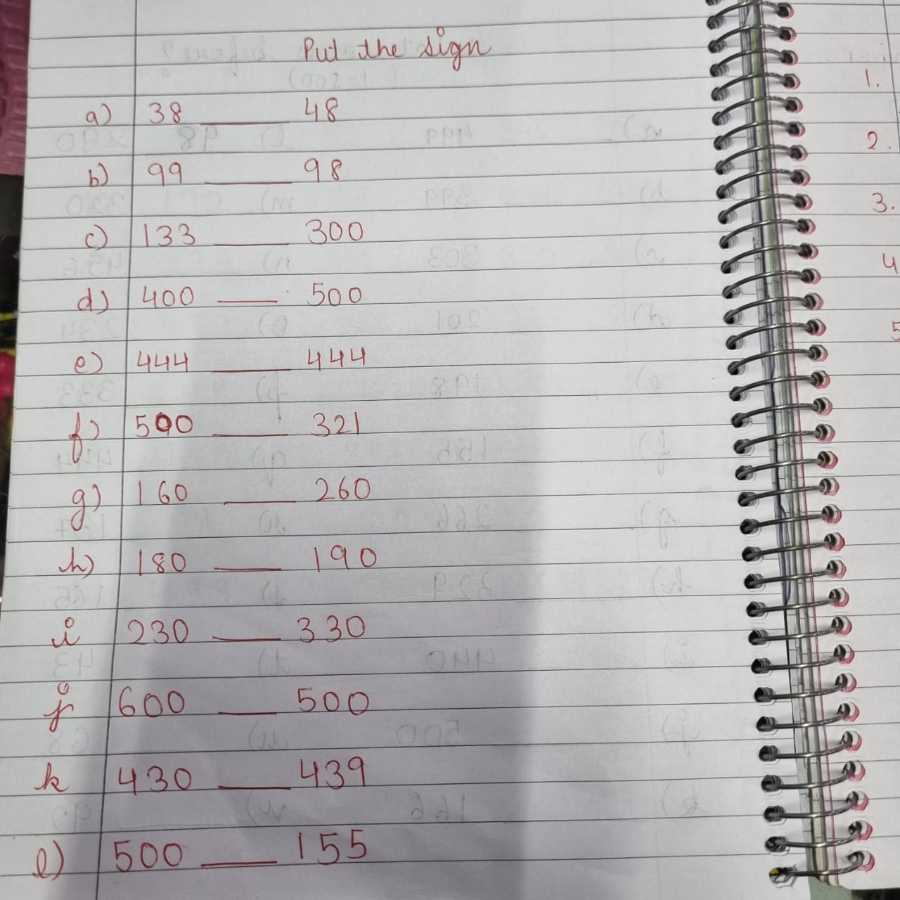 Put the sign
a) 38 ____ 48
b) 99 ____ 98
c) 133 ____ 300
d) 400 ____ 500
e) 444 ____ 444
f) 500 ____ 321
g) 160 ____ 260
h) 180 ____ 190
i 230 ____ 330
j 600 ____ 500
k 430 ____ 439
l) 500 ____ 155
1.
2.
3.
4
5